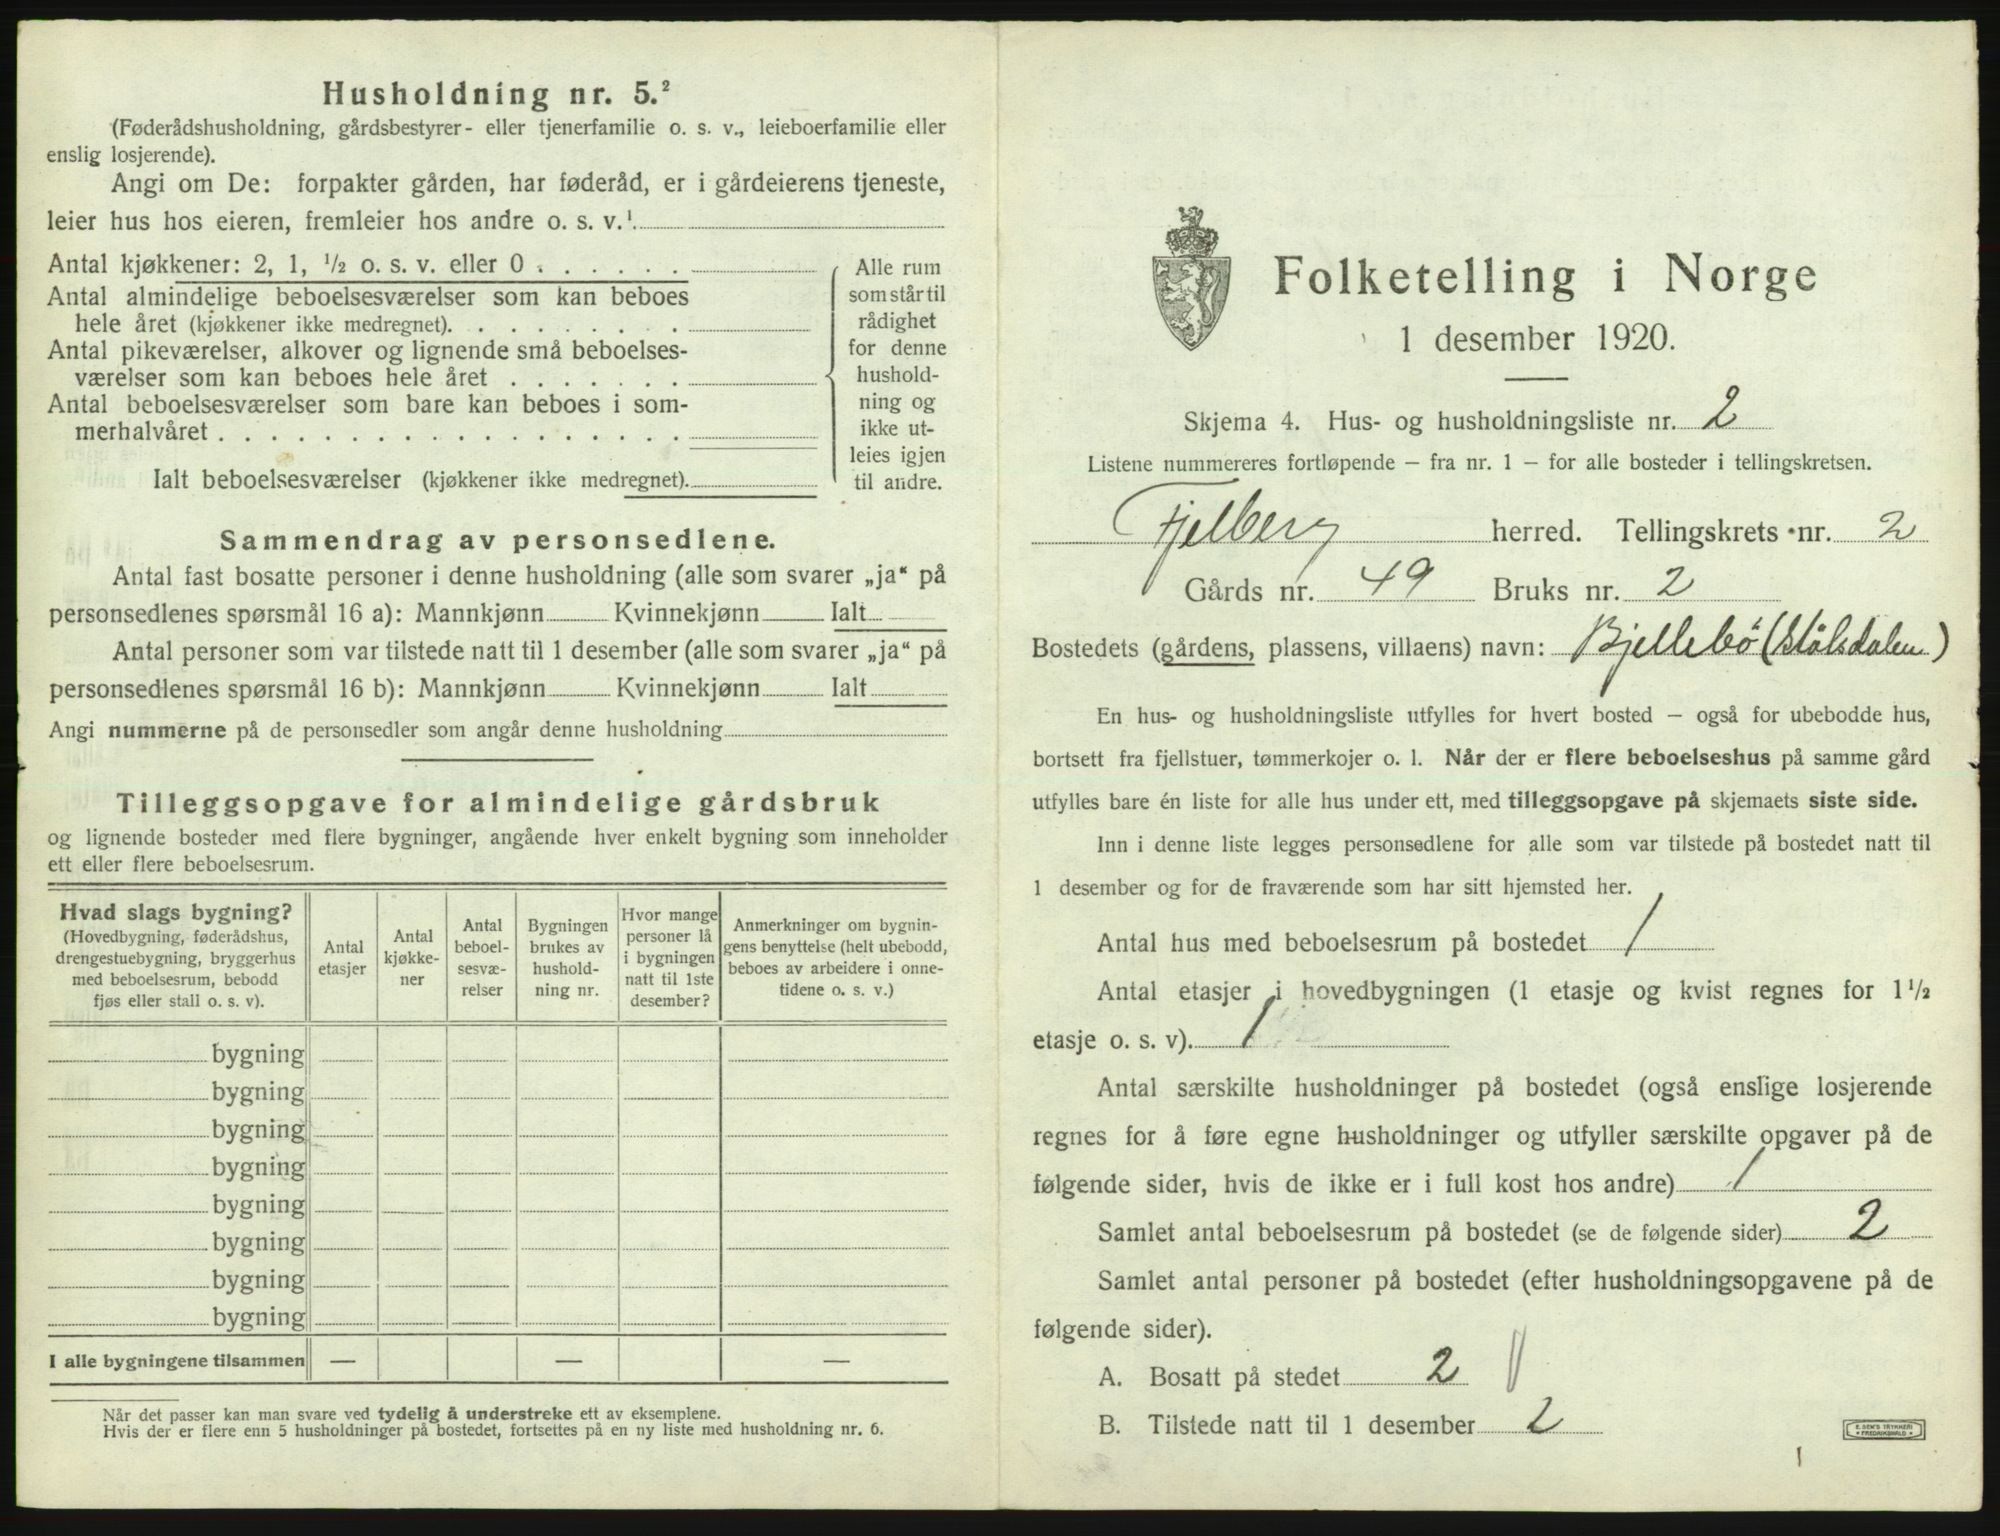 Husholdning nr. 5.²
(Føderådshusholdning, gårdsbestyrer- eller tjenerfamilie o. s. v., leieboerfamilie eller
enslig losjerende).
Angi om De: forpakter gården, har føderåd, er i gårdeierens tjeneste,
leier hus hos eieren, fremleier hos andre o. s. v.¹
Antal kjøkkener: 2, 1, ½ o. s. v. eller 0 . . . . . .
Antal almindelige beboelsesværelser som kan beboes
hele året (kjøkkener ikke medregnet). . . . . . . . .
Antal pikeværelser, alkover og lignende små beboelses-
værelser som kan beboes hele året . . . . . . .
Antal beboelsesværelser som bare kan beboes i som-
merhalvåret . . . . . . . . . . . . . . . . . .
Ialt beboelsesværelser (kjøkkener ikke medregnet).
Alle rum
som står til
rådighet
for denne
hushold-
ning og
ikke ut-
leies igjen
til andre.
Sammendrag av personsedlene.
Antal fast bosatte personer i denne husholdning (alle som svarer „ja“ på
personsedlenes spørsmål 16 a): Mannkjønn Kvinnekjønn Ialt
Antal personer som var tilstede natt til 1 desember (alle som svarer „ja“ på
personsedlenes spørsmål 16 b): Mannkjønn Kvinnekjønn Ialt
Angi nummerne på de personsedler som angår denne husholdning
Tilleggsopgave for almindelige gårdsbruk
og lignende bosteder med flere bygninger, angående hver enkelt bygning som inneholder
ett eller flere beboelsesrum.
Hvad slags bygning?
(Hovedbygning, føderådshus,
drengestuebygning, bryggerhus
med beboelsesrum, bebodd
fjøs eller stall o. s. v).
Antal
etasjer
Antal
kjøkke-
ner
Antal
beboel-
sesvæ-
relser
Bygningen
brukes av
hushold-
ning nr.
Hvor mange
personer lå
i bygningen
natt til 1ste
desember?
Anmerkninger om bygnin-
gens benyttelse (helt ubebodd,
beboes av arbeidere i onne-
tidene o. s. v.)
bygning
bygning
bygning
bygning
bygning
bygning
bygning
bygning
I alle bygningene tilsammen — — —
Når det passer kan man svare ved tydelig å understreke ett av eksemplene.
Hvis der er flere enn 5 husholdninger på bostedet, fortsettes på en ny liste med husholdning nr. 6.
Folketelling i Norge
1 desember 1920.
Skjema 4. Hus- og husholdningsliste nr. 2
Listene nummereres fortløpende – fra nr. 1 – for alle bosteder i tellingskretsen.
Fjelberg herred. Tellingskrets nr. 2
Gårds nr. 49 Bruks nr. 2
Bostedets (gårdens, plassens, villaens) navn: Bjellebö (Stölsdalen)
En hus- og husholdningsliste utfylles for hvert bosted – også for ubebodde hus,
bortsett fra fjellstuer, tømmerkojer o. l. Når der er flere beboelseshus på samme gård
utfylles bare én liste for alle hus under ett, med tilleggsopgave på skjemaets siste side.
Inn i denne liste legges personsedlene for alle som var tilstede på bostedet natt til
1 desember og for de fraværende som har sitt hjemsted her.
Antal hus med beboelsesrum på bostedet 1
Antal etasjer i hovedbygningen (1 etasje og kvist regnes for 1½
etasje o. s. v). 1
Antal særskilte husholdninger på bostedet (også enslige losjerende
regnes for å føre egne husholdninger og utfyller særskilte opgaver på de
følgende sider, hvis de ikke er i full kost hos andre) 1
Samlet antal beboelsesrum på bostedet (se de følgende sider) 2
Samlet antal personer på bostedet (efter husholdningsopgavene på de
følgende sider).
A. Bosatt på stedet 2
B. Tilstede natt til 1 desember 2